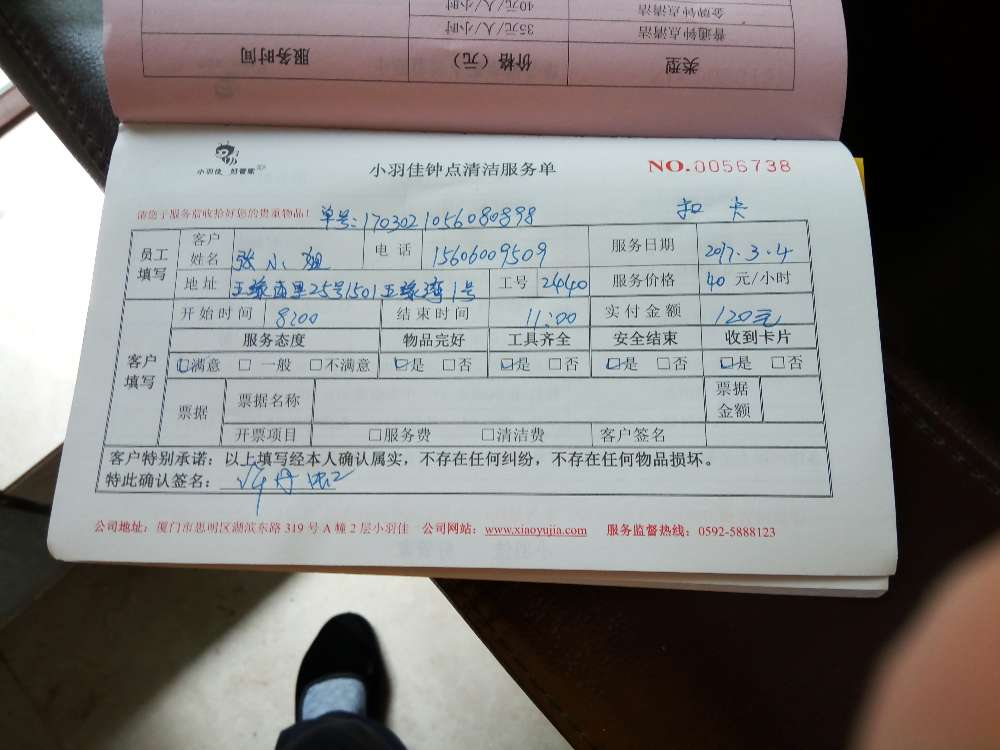 金牌钟点清洁 40元/人/小时
普通钟点清洁 35元/人/小时
类型 价格（元） 服务时间
小羽佳 好管家
小羽佳钟点清洁服务单
NO.0056738
请您于服务前收拾好您的贵重物品！
单号：1703021056080898
扣卡
员工填写 客户姓名 张小姐 电话 15606009509 服务日期 2017.3.4
地址 25号1501 1号 工号 2440 服务价格 40 元/小时
开始时间 8:00 结束时间 11:00 实付金额 120元
客户填写 服务态度 物品完好 工具齐全 安全结束 收到卡片
☑满意 □一般 □不满意 ☑是 □否 ☑是 □否 ☑是 □否 ☑是 □否
票据 票据名称 票据金额
开票项目 □服务费 □清洁费 客户签名
客户特别承诺：以上填写经本人确认属实，不存在任何纠纷，不存在任何物品损坏。
特此确认签名：
公司地址：厦门市思明区湖滨东路 319 号 A 幢 2 层小羽佳 公司网站：www.xiaoyujia.com 服务监督热线：0592-5888123